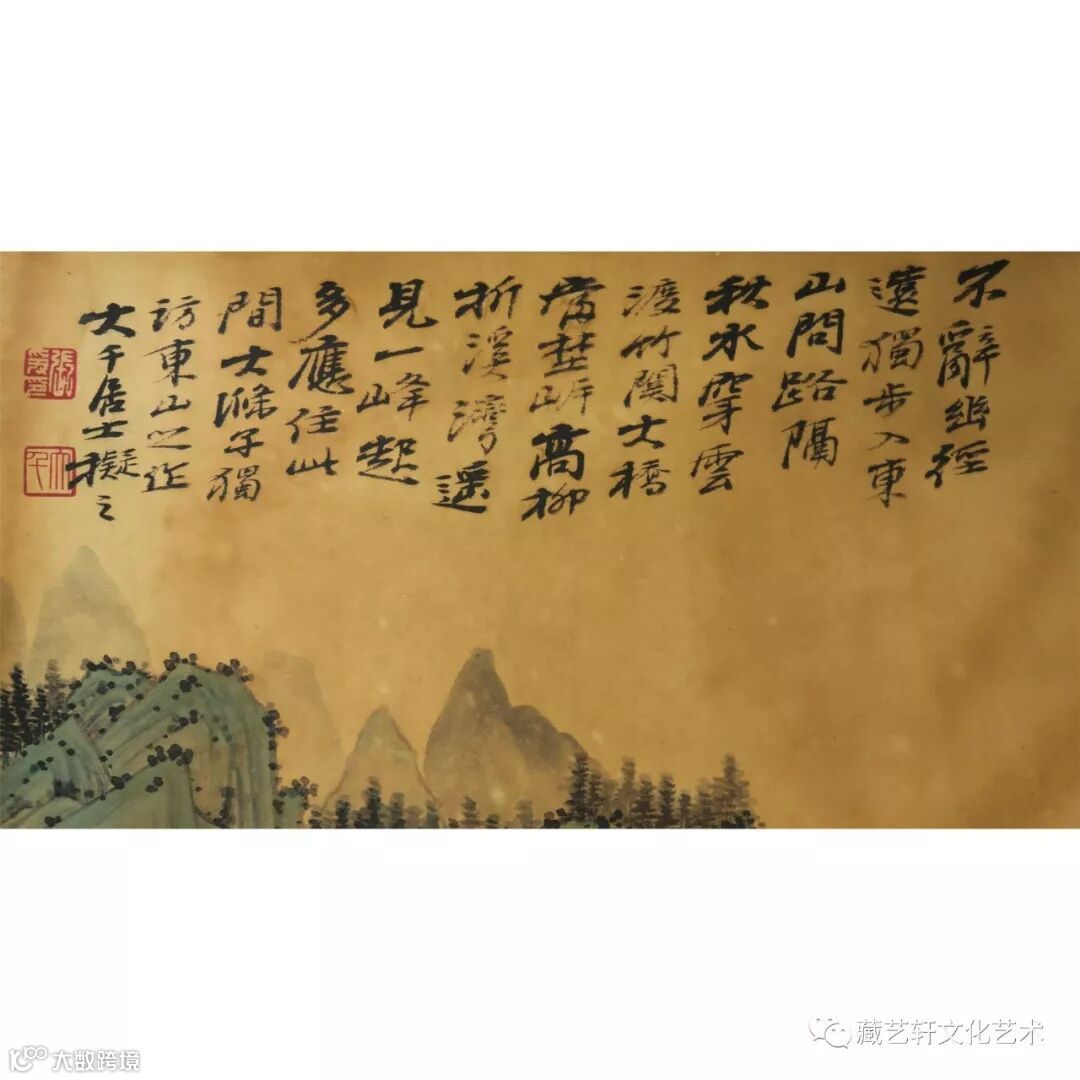 不辭幽徑
遠獨步入東
山問路隔
秋水穿雲
渡竹關大橋
當埜岸高柳
折溪灣遥
見一峰起
多應住此
間大滌子獨
訪東山之作
大千居士擬之
藏艺轩文化艺术
大数跨境